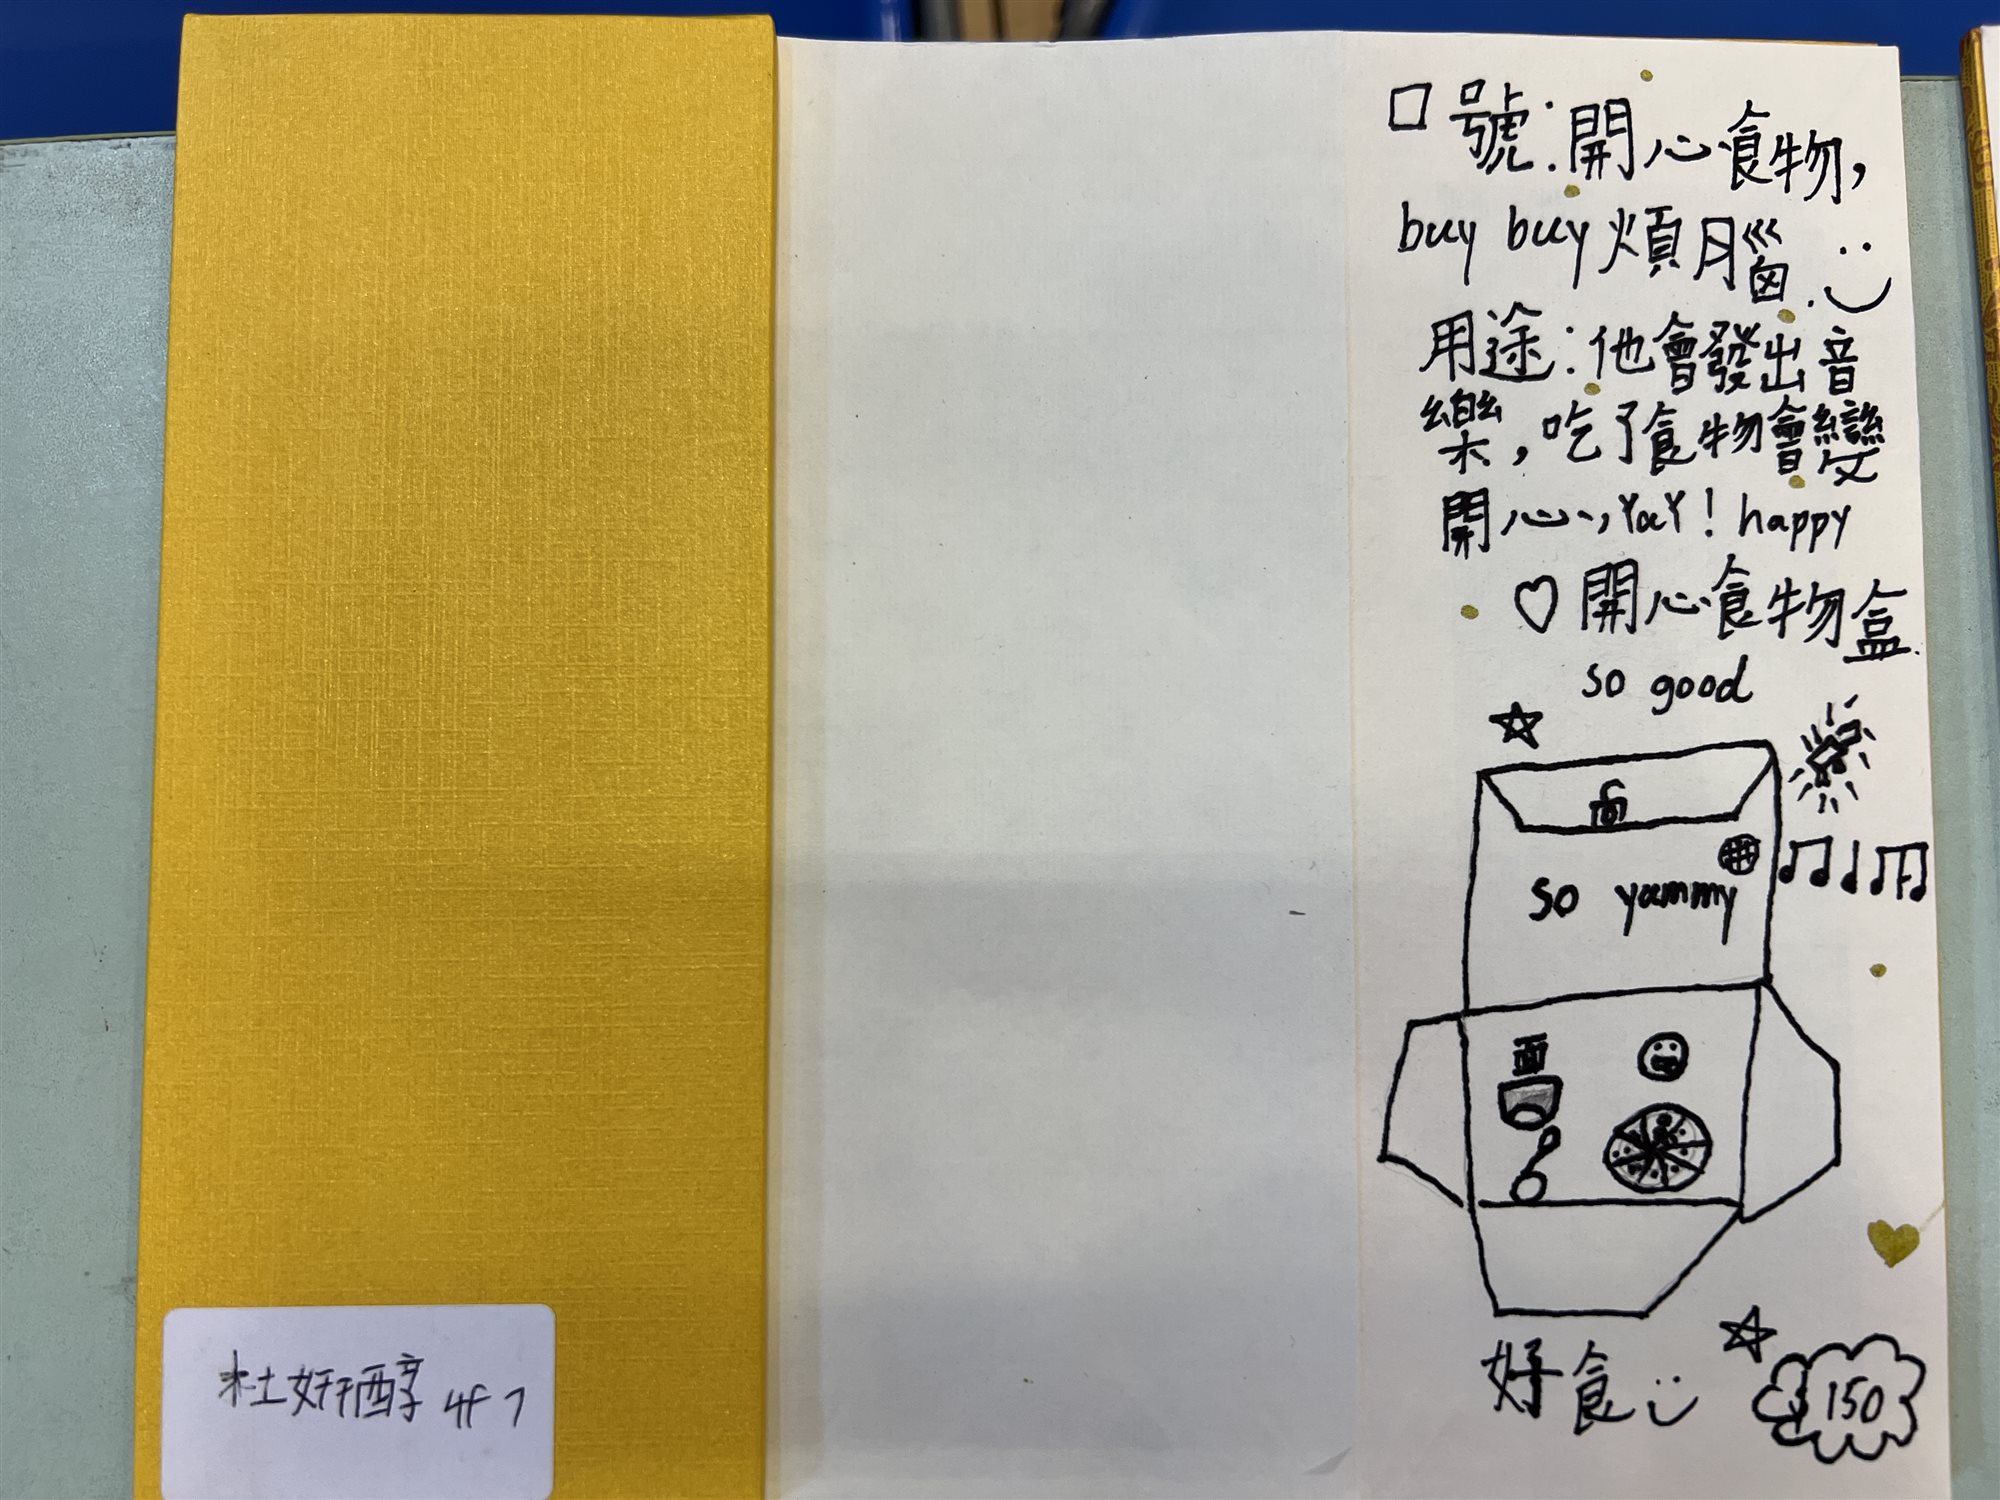 口號:開心食物,
buy buy 煩腦.
用途:他會發出音
樂,吃了食物會變
開心,YaY! happy
開心食物盒.
so good
so yammy
面
好食
150
杜妍醇 4F 7